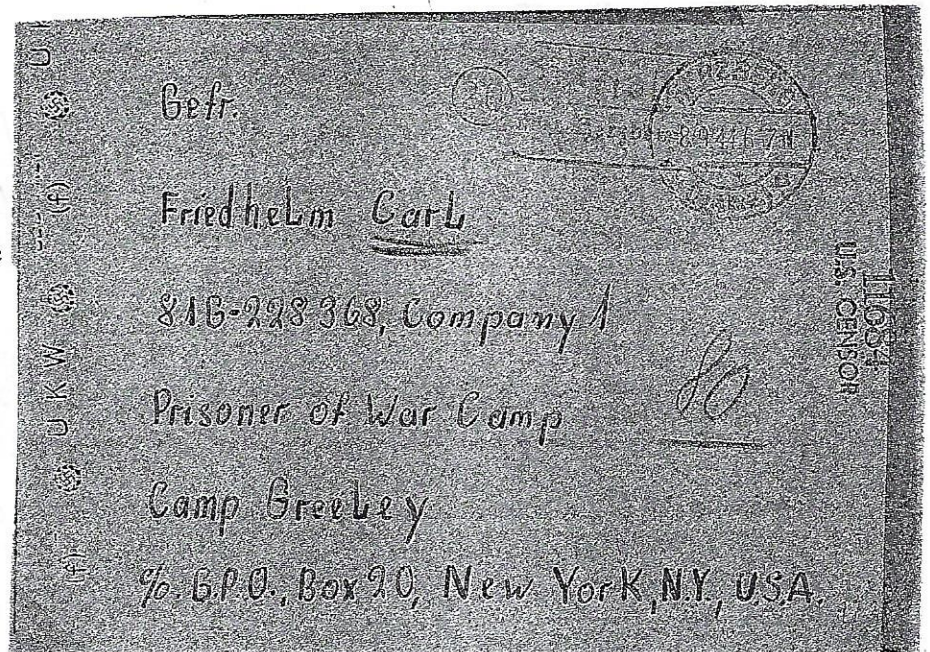 Gefr.
Friedhelm Carl
81G-228368, Company 1
Prisoner of War Camp
Camp Greeley
c/o. G.P.O., Box 20, New York, N.Y., U.S.A.
80
U.S. CENSOR
U K W